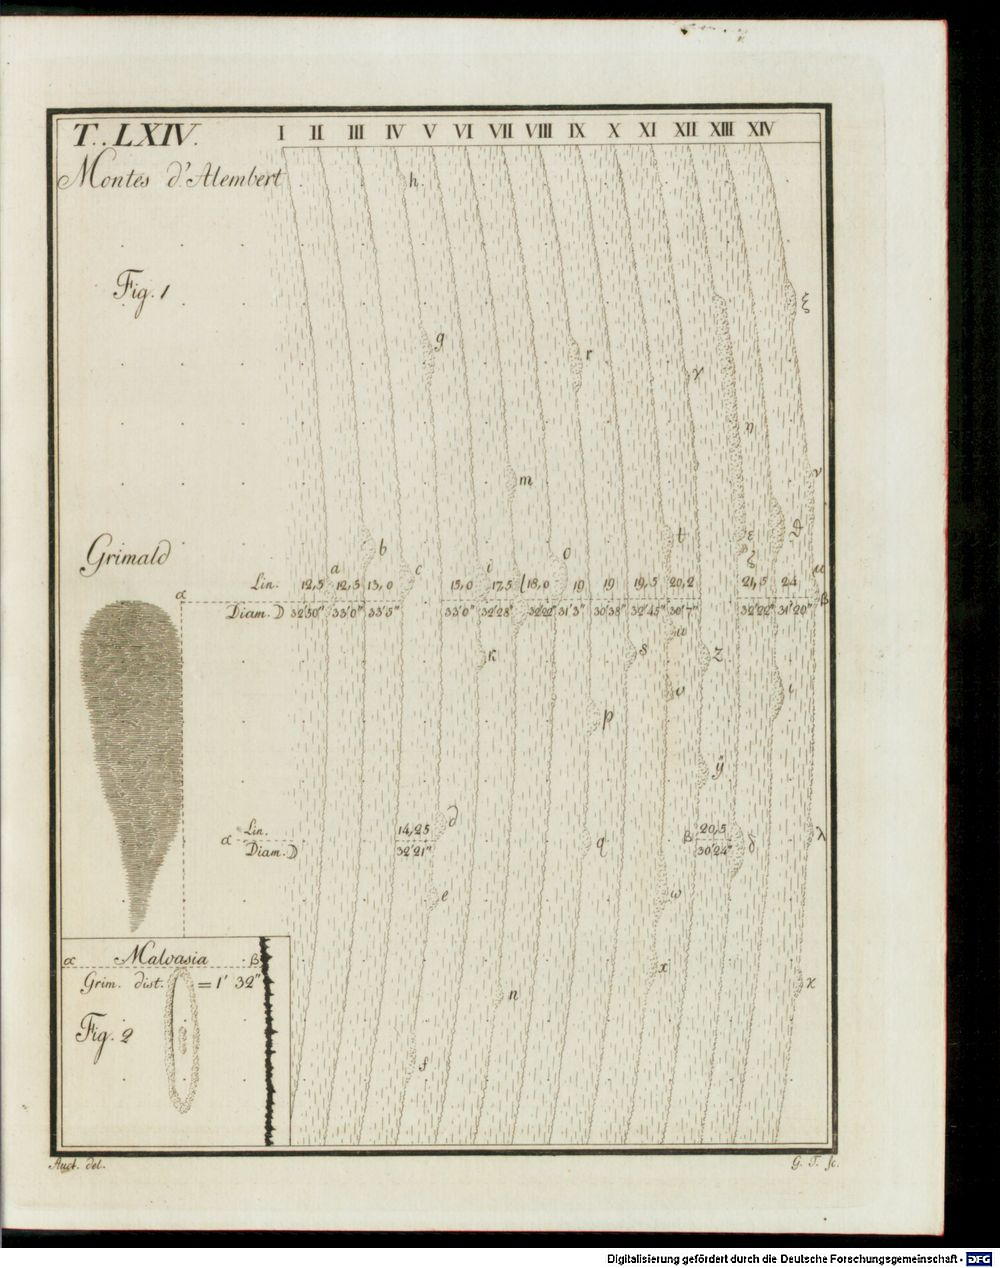 T. LXIV.
I II III IV V VI VII VIII IX X XI XII XIII XIV
Montes d'Alembert
h
Fig. 1
ξ
g
r
γ
η
m
ν
t
ε
ϑ
ζ
b
o
Grimald
a
c
i
μ
Lin. 12,5 12,5 13,0 15,0 17,5 l 18,0 19 19 19,5 20,2 21,5 24
α
β
Diam. ☽ 32'50" 33'0" 33'5" 33'0" 32'28" 32'22" 31'3" 30'38" 32'45" 30'7" 32'22" 31'20"
u
k
s
z
v
ι
p
ÿ
d
Lin. 14,25 20,5
α
β
δ
λ
Diam. ☽ 32'21" 30'24"
q
e
ω
α Malvasia β
x
Grim. dist. = 1' 32"
ϰ
n
Fig. 2
f
Auct. del.
G. T. sc.
Digitalisierung gefördert durch die Deutsche Forschungsgemeinschaft - DFG